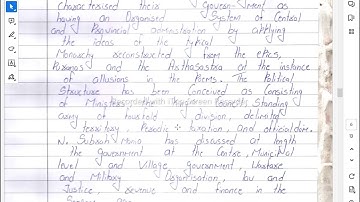 characterised their Govern-ment as
having an Organised System of Central
and Provincial administration by applying
the ideas of the typical
Monarchy reconstructed from the epics,
Puranas and the Arthasastra at the instance
of allusions in the Poems. The Political
Structure has been Conceived as Consisting
of Ministers Standing
army of division,
territory, Periodic taxation, and official
N. has discussed at length
the government at the Centre, Municipal
level and Village government, Warfare
and Military Organisation, but and
Justice, revenue and finance in the